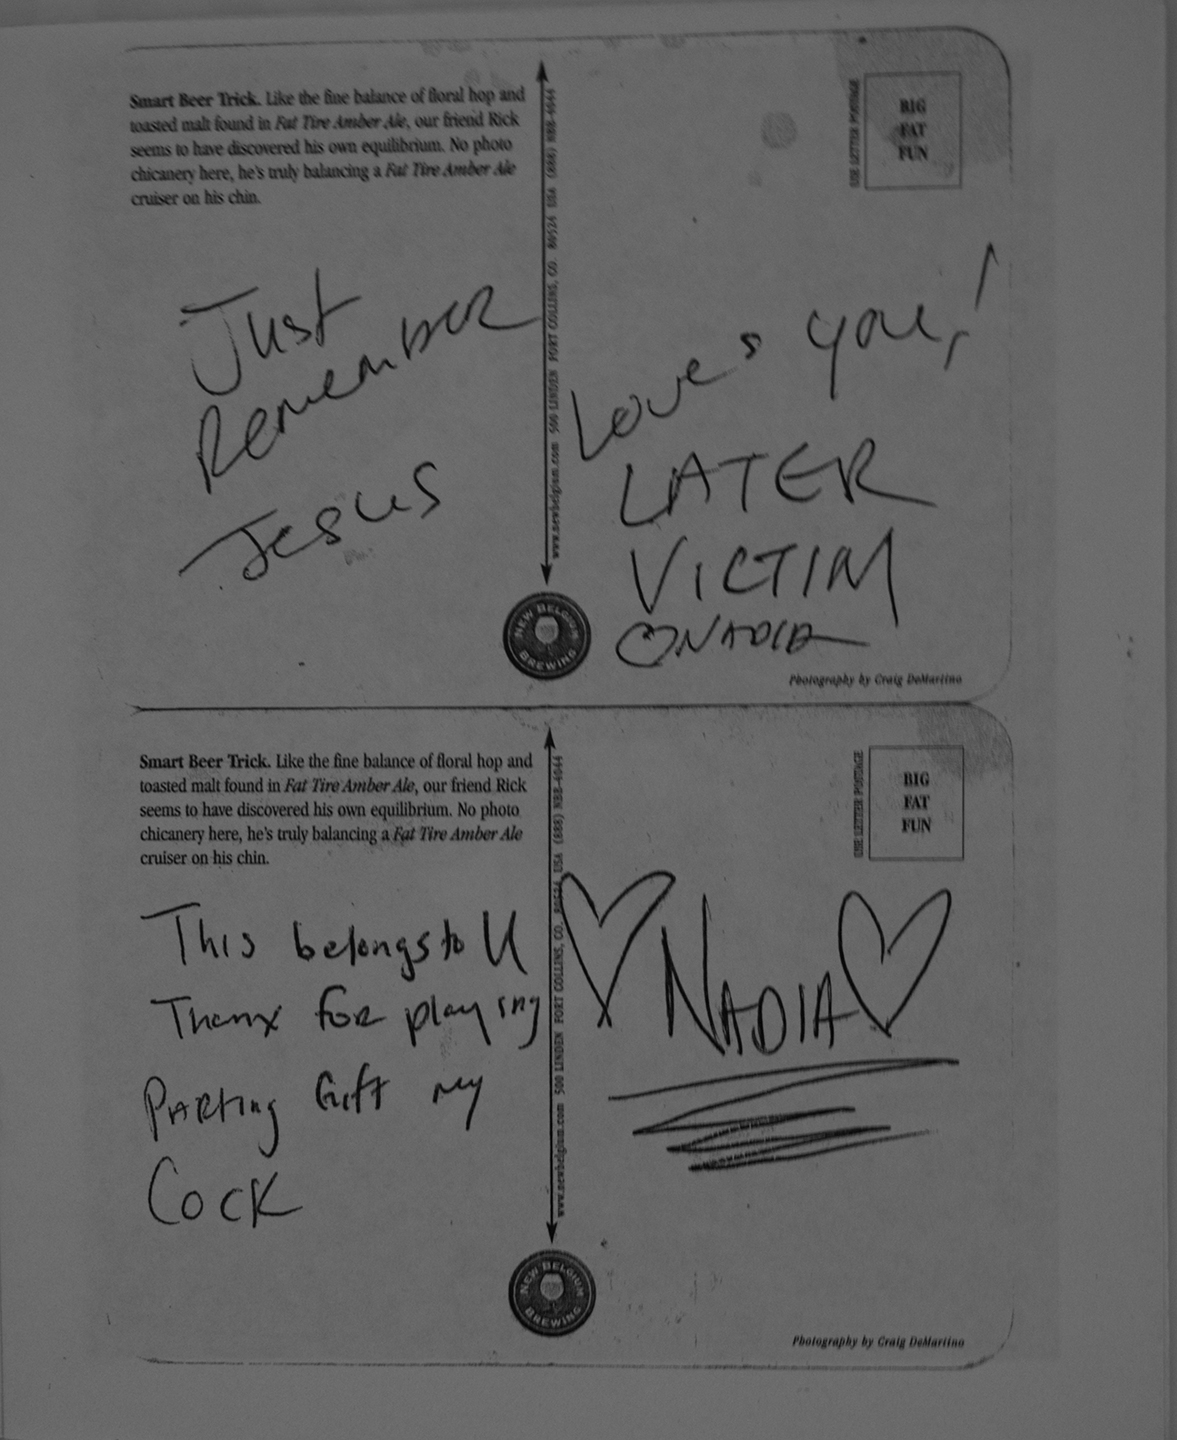 Smart Beer Trick. Like the fine balance of floral hop and
toasted malt found in Fat Tire Amber Ale, our friend Rick
seems to have discovered his own equilibrium. No photo
chicanery here, he's truly balancing a Fat Tire Amber Ale
cruiser on his chin.
Just
Remember
Jesus
www.newbelgium.com 500 LINDEN FORT COLLINS, CO. 80524 USA (888) NBB-4044
NEW BELGIUM
BREWING
USE LETTER POSTAGE
BIG
FAT
FUN
Loves you,!
LATER
VICTIM
♡NADIA
Photography by Craig DeMartino
Smart Beer Trick. Like the fine balance of floral hop and
toasted malt found in Fat Tire Amber Ale, our friend Rick
seems to have discovered his own equilibrium. No photo
chicanery here, he's truly balancing a Fat Tire Amber Ale
cruiser on his chin.
This belongs to U
Thanx for playing
Parting Gift my
Cock
www.newbelgium.com 500 LINDEN FORT COLLINS, CO. 80524 USA (888) NBB-4044
NEW BELGIUM
BREWING
USE LETTER POSTAGE
BIG
FAT
FUN
♡ NADIA ♡
Photography by Craig DeMartino